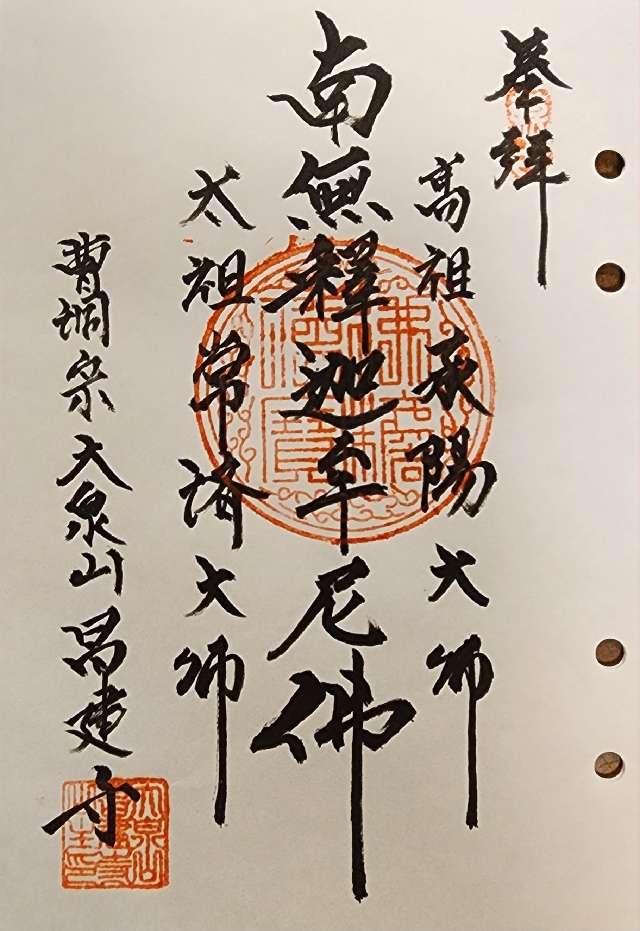 奉拝
高祖承陽大師
南無釋迦牟尼佛
太祖常済大師
曹洞宗大泉山昌建寺